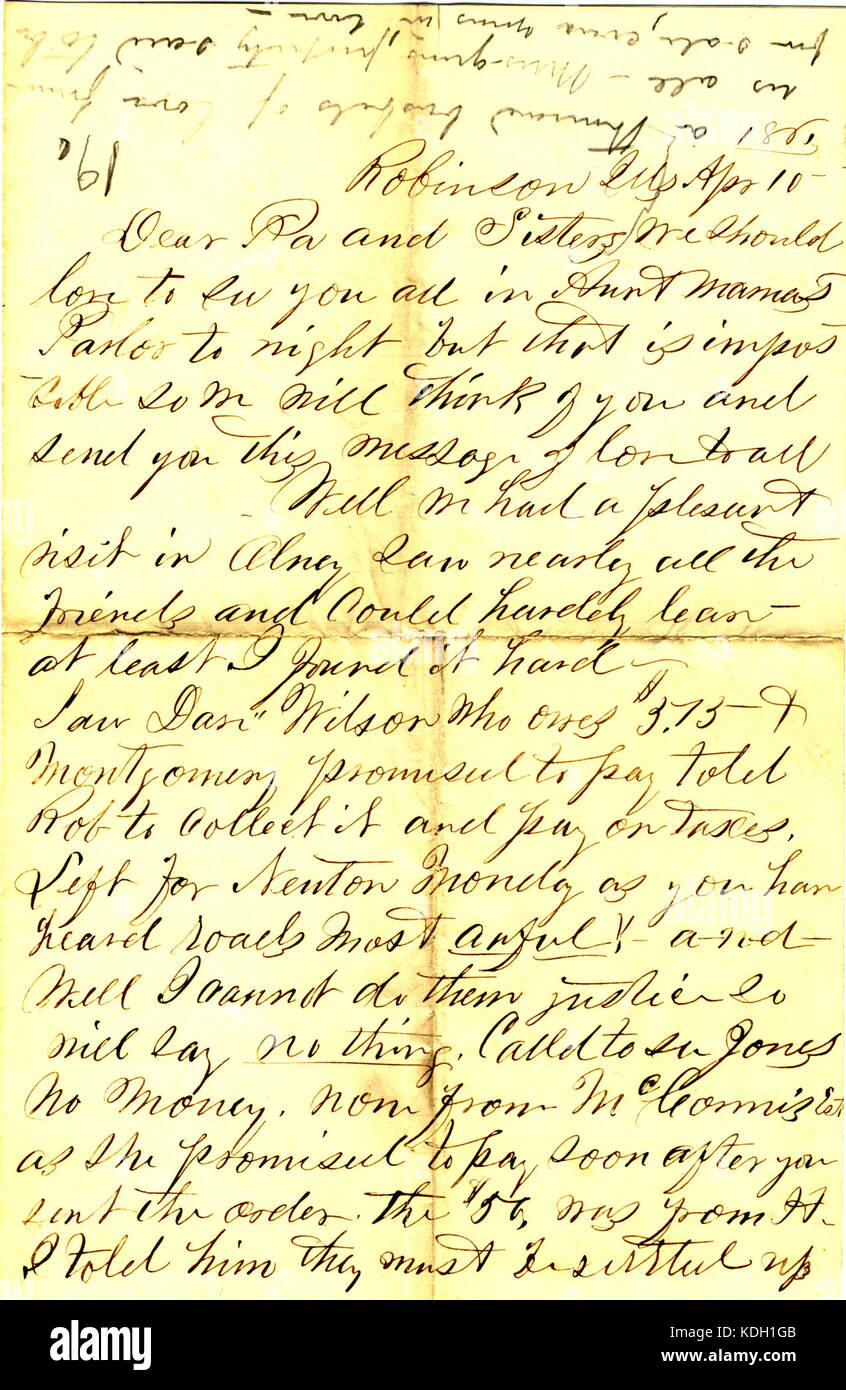 us all
a thousand bushels of love from
19
Robinson Ills Apr 10
Dear Pa and Sisters, We should
love to see you all in Aunt Mamas
Parlor to night but that is impos
sible so we will think of you and
send you this message of love to all
Well we had a plesant
visit in Olney saw nearly all the
friends and Could hardely leave
at least I found it hard
Saw Dave" Wilson who owes $3.75 - &
Montgomery promised to pay told
Rob to Collect it and pay on taxes,
Left for Newton Monday as you have
heard roads most awful!! - and
Well I cannot do them justice so
will say no thing. Called to see Jones
No Money. none from McComis Est
as she promised to pay soon after you
sent the order. the $50, was from H.
I told him they must be settled up
alamy
Image ID: KD1H1GB
www.alamy.com